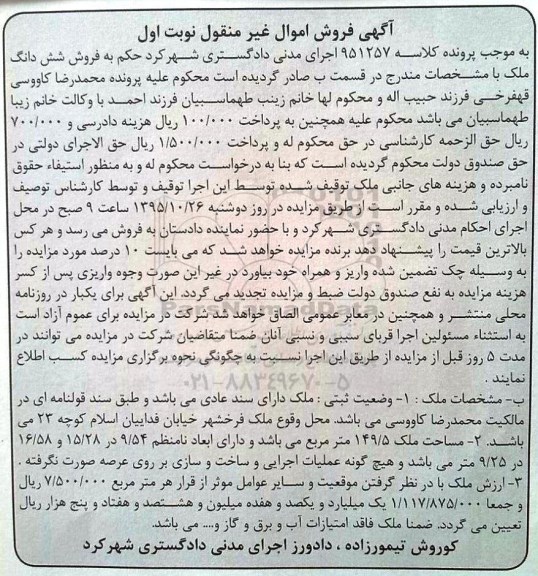 آگهی فروش اموال غیر منقول نوبت اول
به موجب پرونده کلاسه ۹۵۱۲۵۷ اجرای مدنی دادگستری شهرکرد حکم به فروش شش دانگ
ملک با مشخصات مندرج در قسمت ب صادر گردیده است محکوم علیه پرونده محمدرضا کاووسی
قهفرخی فرزند حبیب اله و محکوم لها خانم زینب طهماسبیان فرزند احمد با وکالت خانم زیبا
طهماسبیان می باشد محکوم علیه همچنین به پرداخت ۱۰۰/۰۰۰ ریال هزینه دادرسی و ۷۰۰/۰۰۰
ریال حق الزحمه کارشناسی در حق محکوم له و پرداخت ۱/۵۰۰/۰۰۰ ریال حق الاجرای دولتی در
حق صندوق دولت محکوم گردیده است که بنا به درخواست محکوم له و به منظور استیفاء حقوق
نامبرده و هزینه های جانبی ملک توقیف شده توسط این اجرا توقیف و توسط کارشناس توصیف
و ارزیابی شده و مقرر است از طریق مزایده در روز دوشنبه ۱۳۹۵/۱۰/۲۶ ساعت ۹ صبح در محل
اجرای احکام مدنی دادگستری شهرکرد و با حضور نماینده دادستان به فروش می رسد و هر کس
بالاترین قیمت را پیشنهاد دهد برنده مزایده خواهد شد که می بایست ۱۰ درصد مورد مزایده را
به وسیله چک تضمین شده واریز و همراه خود بیاورد در غیر این صورت وجوه واریزی پس از کسر
هزینه مزایده به نفع صندوق دولت ضبط و مزایده تجدید می گردد. این آگهی برای یکبار در روزنامه
محلی منتشر و همچنین در معابر عمومی الصاق خواهد شد شرکت در مزایده برای عموم آزاد است
به استثناء مسئولین اجرا قربای سببی و نسبی آنان ضمنا متقاضیان شرکت در مزایده می توانند در
مدت ۵ روز قبل از مزایده از طریق این اجرا نسبت به چگونگی نحوه برگزاری مزایده کسب اطلاع
نمایند .
۰۲۱-۸۸۳۴۹۶۷۰-۵
ب- مشخصات ملک : ۱- وضعیت ثبتی : ملک دارای سند عادی می باشد و طبق سند قولنامه ای در
مالکیت محمدرضا کاووسی می باشد. محل وقوع ملک فرخشهر خیابان فداییان اسلام کوچه ۲۳ می
باشد. ۲- مساحت ملک ۱۴۹/۵ متر مربع می باشد و دارای ابعاد نامنظم ۹/۵۴ در ۱۵/۲۸ و ۱۶/۵۸
در ۹/۲۵ متر می باشد و هیچ گونه عملیات اجرایی و ساخت و سازی بر روی عرصه صورت نگرفته .
۳- ارزش ملک با در نظر گرفتن موقعیت و سایر عوامل موثر از قرار هر متر مربع ۷/۵۰۰/۰۰۰ ریال
و جمعا ۱/۱۱۷/۸۷۵/۰۰۰ یک میلیارد و یکصد و هفده میلیون و هشتصد و هفتاد و پنج هزار ریال
تعیین می گردد. ضمنا ملک فاقد امتیازات آب و برق و گاز و.... می باشد.
کوروش تیمورزاده ، دادورز اجرای مدنی دادگستری شهرکرد